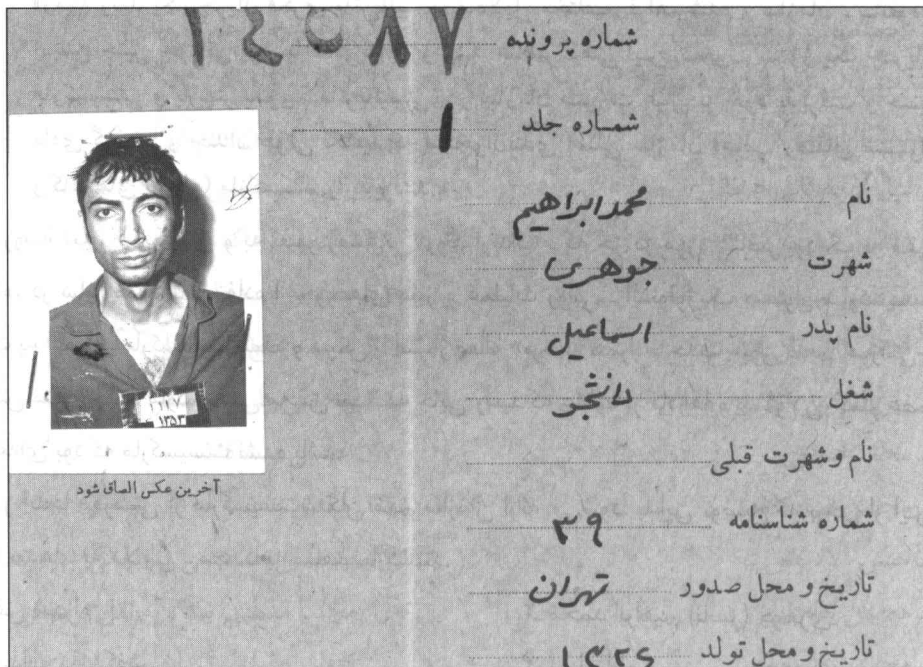 شماره پرونده ۱۴۵۸۷
شماره جلد ۱
نام محمد ابراهیم
شهرت جوهری
نام پدر اسماعیل
شغل دانشجو
نام و شهرت قبلی
شماره شناسنامه ۳۹
تاریخ و محل صدور تهران
تاریخ و محل تولد ۱۳۲۶
۱۳۵۳
آخرین عکس الصاق شود